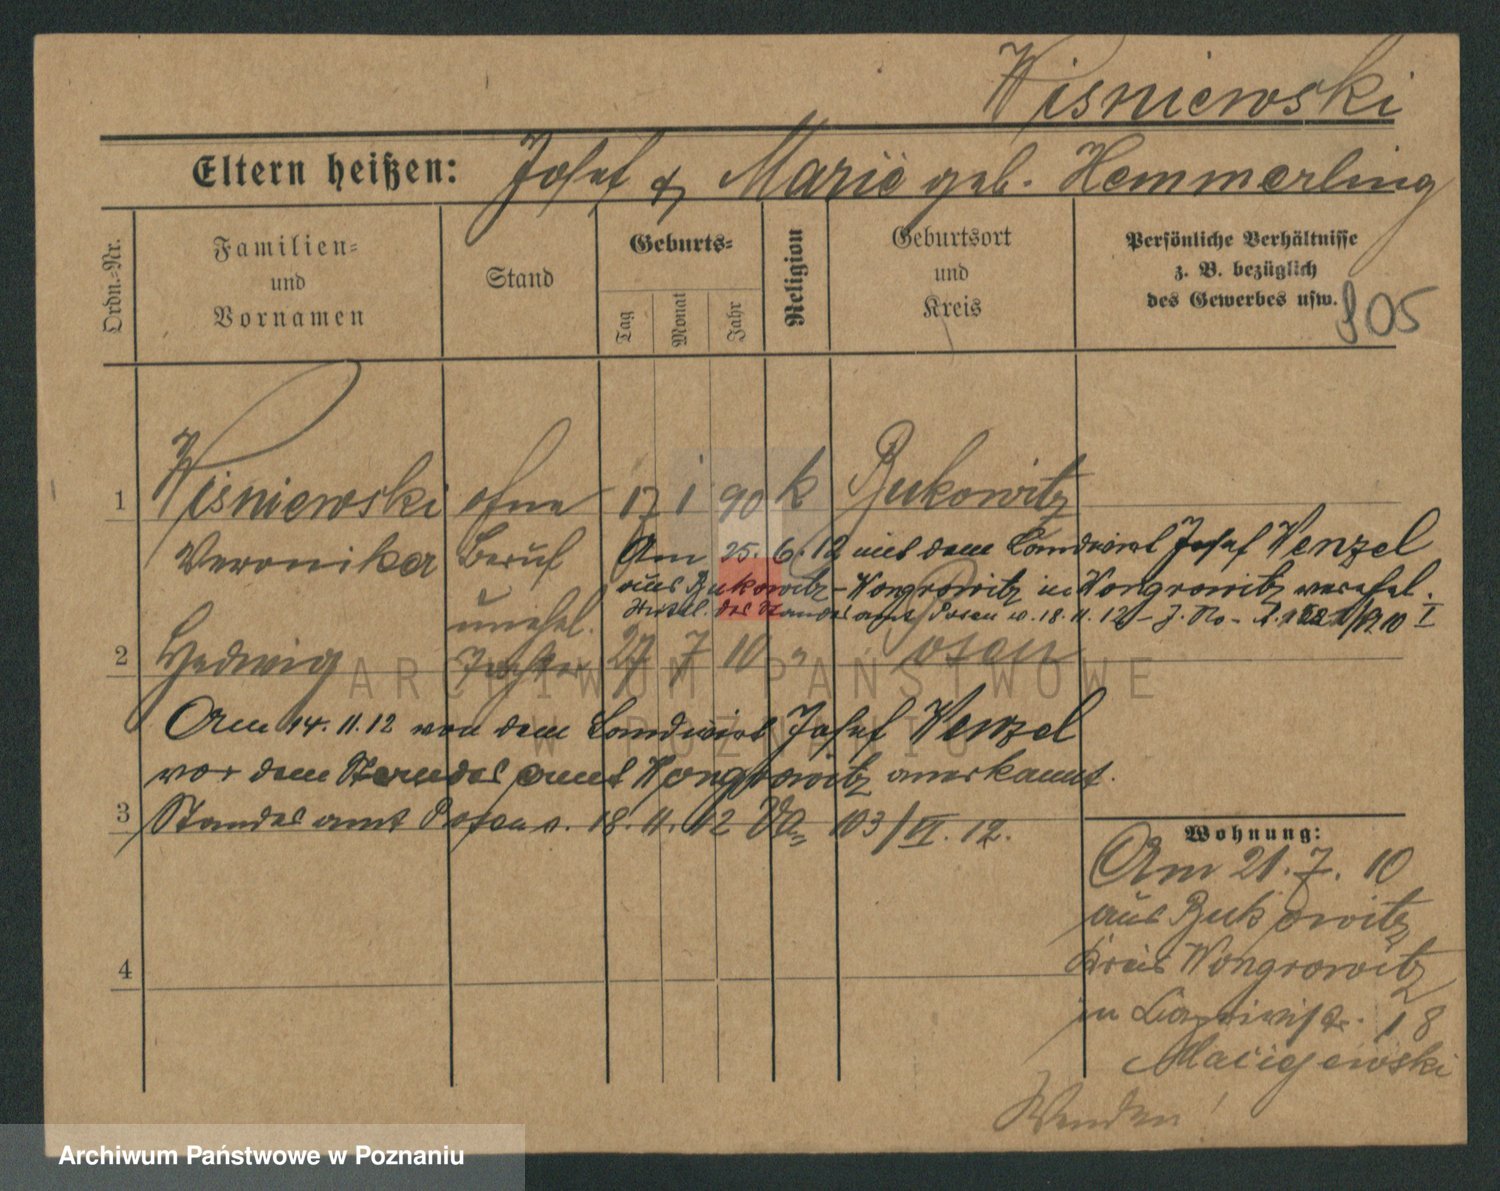 Wisniewski
Eltern heißen: Josef & Marie geb. Hemmerling
Ordn.-Nr.
Familien-
und
Vornamen
Stand
Geburts-
Tag
Monat
Jahr
Religion
Geburtsort
und
Kreis
Persönliche Verhältnisse
z. B. bezüglich
des Gewerbes usw.
805
1 Wisniewski ohne 17 1 90 k Bukowitz
Veronika Beruf Am 25. 6. 12 mit dem Landwirt Josef Wenzel
aus Bukowitz-Wongrowitz in Wongrowitz verehel.
Mittel. des Standesamts Posen v. 18. 11. 12 - J. No -
unehel.
2 Hedwig Tochter 27 7 10 " Posen
Am 14. 11. 12 von dem Landwirt Josef Wenzel
vor dem Standesamt Wongrowitz anerkannt.
3 Standesamt Posen v. 18. 11. 12 103/VI. 12.
4
Wohnung:
Am 21. 7. 10
aus Bukowitz
Kreis Wongrowitz
in 18
Maciejewski
Wenden!
ARCHIWUM PAŃSTWOWE
W POZNANIU
Archiwum Państwowe w Poznaniu